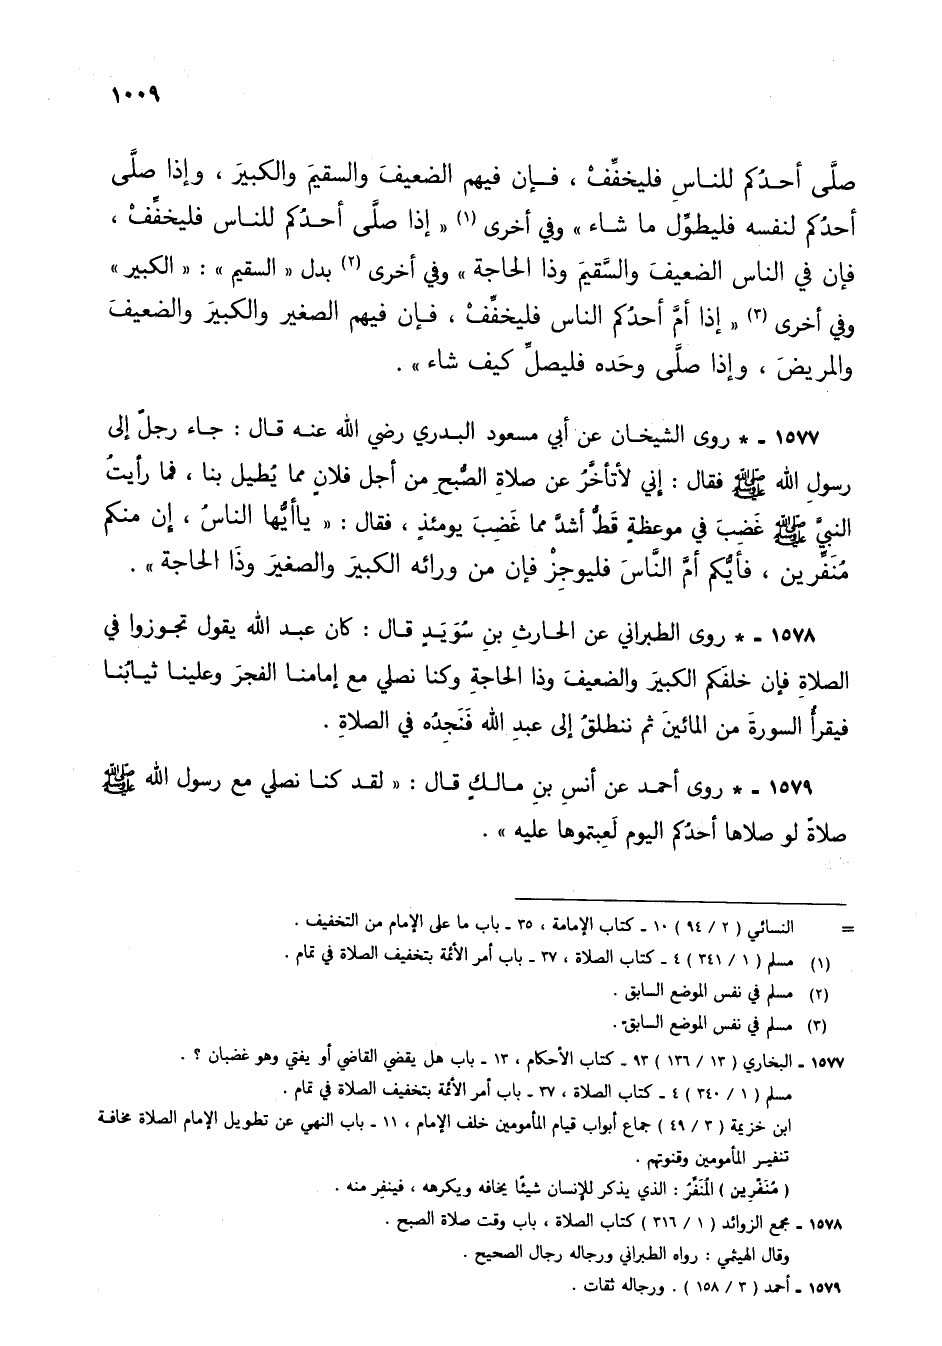 ١٠٠٩
صلَّى أحدُكم للناسِ فليخفِّفْ ، فإن فيهم الضعيفَ والسقيمَ والكبيرَ ، وإذا صلَّى
أحدُكم لنفسه فليطوِّل ما شاء » وفي أخرى (١) « إذا صلَّى أحدُكم للناس فليخفِّفْ ،
فإن في الناس الضعيفَ والسَّقيمَ وذا الحاجة » وفي أخرى (٢) بدل « السقيم » : « الكبير »
وفي أخرى (٣) « إذا أمَّ أحدُكم الناس فليخفِّفْ ، فإن فيهم الصغير والكبيرَ والضعيفَ
والمريضَ ، وإذا صلَّى وحَده فليصلِّ كيف شاء » .
١٥٧٧ ـ * روى الشيخان عن أبي مسعود البدري رضي الله عنه قال : جاء رجلٌ إلى
رسول الله ﷺ فقال : إني لأتأخَّرُ عن صلاةِ الصُّبحِ من أجل فلانٍ مما يُطيل بنا ، فما رأيتُ
النبيَّ ﷺ غَضِبَ في موعظةٍ قَطُّ أشدَّ مما غَضِبَ يومئذٍ ، فقال : « ياأيُّها الناسُ ، إن منكم
مُنَفِّرين ، فأيُّكم أمَّ النَّاسَ فليوجِزْ فإن من ورائه الكبيرَ والصغيرَ وذَا الحاجة » .
١٥٧٨ ـ * روى الطبراني عن الحارثِ بنِ سُوَيَدٍ قال : كان عبد الله يقول تجوزوا في
الصلاةِ فإن خلفَكم الكبيرَ والضعيفَ وذا الحاجةِ وكنا نصلي مع إمامنا الفجرَ وعلينا ثيابُنا
فيقرأُ السورةَ من المائينَ ثم ننطلقُ إلى عبدِ الله فَنَجِدُه في الصلاةِ .
١٥٧٩ ـ * روى أحمد عن أنسِ بنِ مالكٍ قال : « لقد كنا نصلي مع رسولِ الله ﷺ
صلاةً لو صلاها أحدُكم اليوم لَعِبتموها عليه » .
= النسائي ( ٢ / ٩٤ ) ١٠ ـ كتاب الإمامة ، ٣٥ ـ باب ما على الإمام من التخفيف .
(١) مسلم ( ١ / ٣٤١ ) ٤ ـ كتاب الصلاة ، ٣٧ ـ باب أمر الأئمة بتخفيف الصلاة في تمام .
(٢) مسلم في نفس الموضع السابق .
(٣) مسلم في نفس الموضع السابق .
١٥٧٧ ـ البخاري ( ١٣ / ١٣٦ ) ٩٣ ـ كتاب الأحكام ، ١٣ ـ باب هل يقضي القاضي أو يفتي وهو غضبان ؟ .
مسلم ( ١ / ٣٤٠ ) ٤ ـ كتاب الصلاة ، ٣٧ ـ باب أمر الأئمة بتخفيف الصلاة في تمام .
ابن خزيمة ( ٣ / ٤٩ ) جماع أبواب قيام المأمومين خلف الإمام ، ١١ ـ باب النهي عن تطويل الإمام الصلاة مخافة
تنفير المأمومين وقنوتهم .
( مُنَفِّرين ) المُنَفِّرُ : الذي يذكر للإنسان شيئًا يخافه ويكرهه ، فينفِر منه .
١٥٧٨ ـ مجمع الزوائد ( ١ / ٣١٦ ) كتاب الصلاة ، باب وقت صلاة الصبح .
وقال الهيثمي : رواه الطبراني ورجاله رجال الصحيح .
١٥٧٩ ـ أحمد ( ٣ / ١٥٨ ) . ورجاله ثقات .